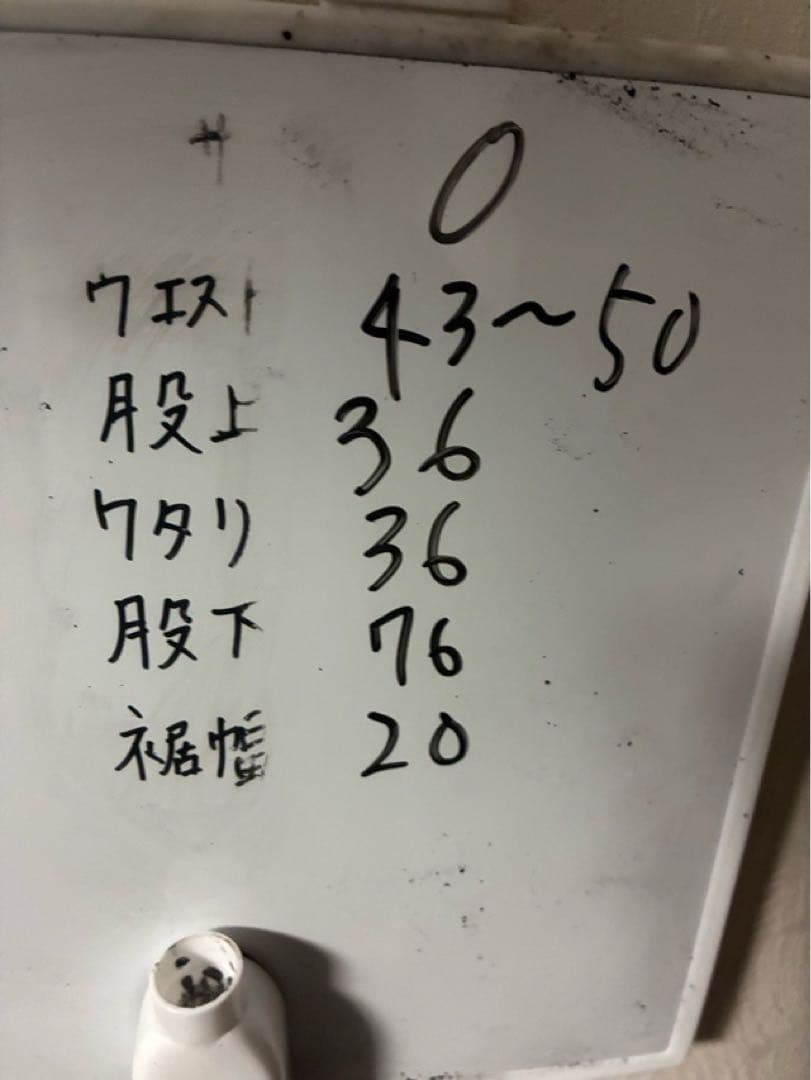 サ 0
ウエスト 43~50
股上 36
ワタリ 36
股下 76
裾幅 20